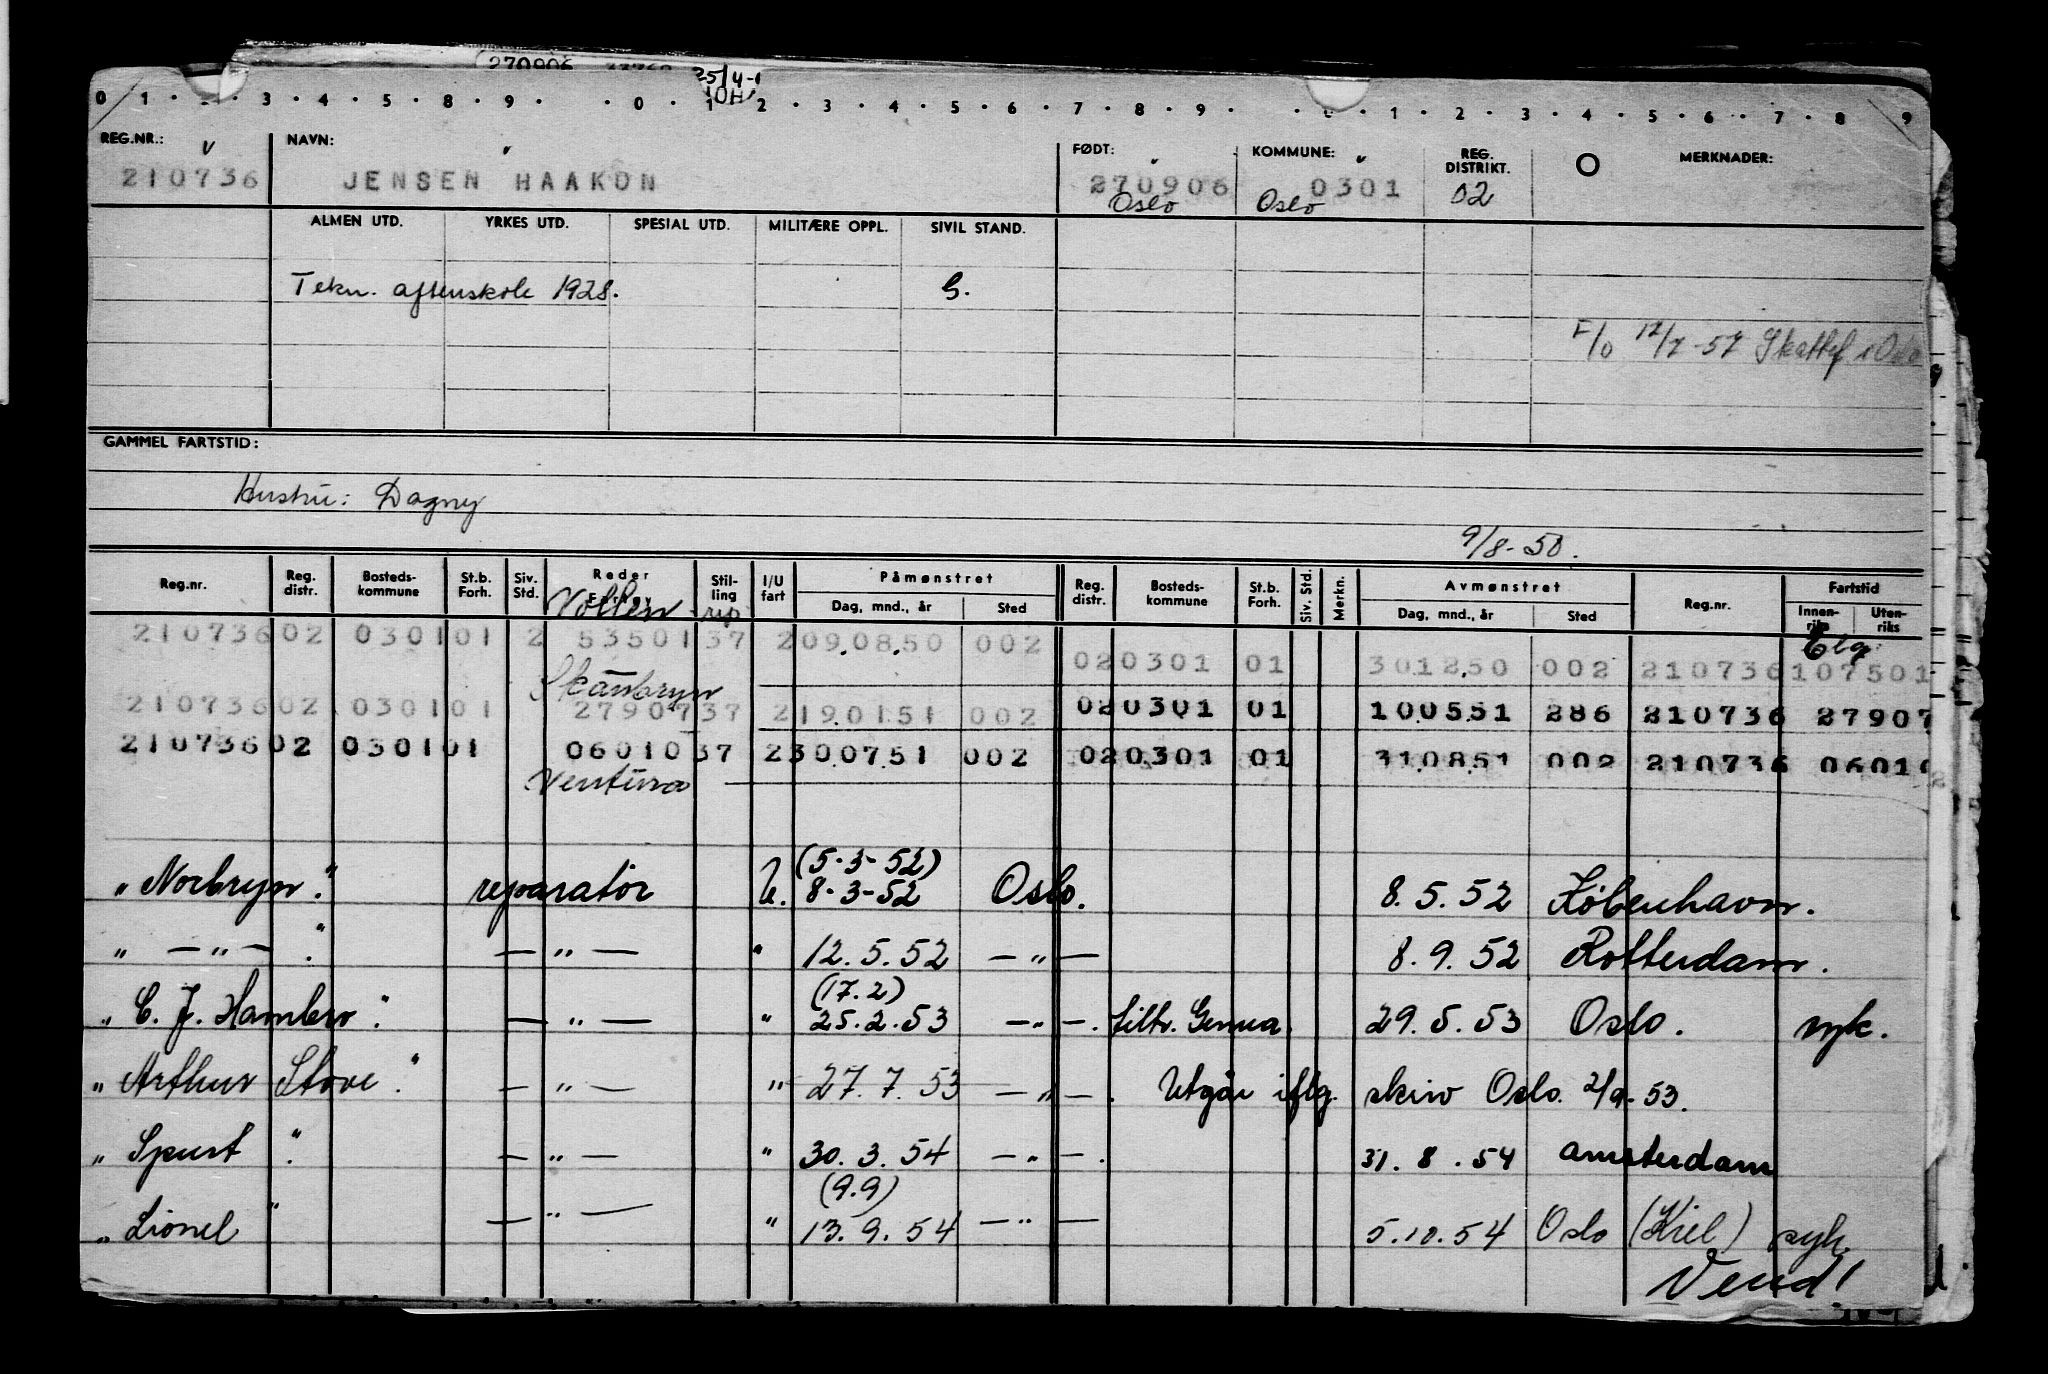 270906
25/4-
0 1 . . 3 . 4 . 5 . 8 . 9 . . 0 . 1 . 2 . 3 . 4 . 5 . 6 . 7 . 8 . 9 . . . 1 . 2 . 3 . 4 . 5 . 6 . 7 . 8 . 9
REG.NR.: NAVN: FØDT: KOMMUNE: REG. DISTRIKT. O MERKNADER:
210736 JENSEN HAAKON 270906 0301 02
Oslo Oslo
ALMEN UTD. YRKES UTD. SPESIAL UTD. MILITÆRE OPPL. SIVIL STAND.
Tekn. aftenskole 1928. G.
F/0 12/7-57 Skattef i Oslo
GAMMEL FARTSTID:
Hustru: Dagny
9/8-50.
Reg.nr. Reg. distr. Bosteds- kommune St.b. Forh. Siv. Std. Reder Stil- ling I/U fart Påmønstret Reg. distr. Bosteds- kommune St.b. Forh. Siv. Std. Merkn. Avmønstret Reg.nr. Fartstid
Dag, mnd., år Sted Dag, mnd., år Sted Innen- riks Uten- riks
Vollen rep
210736 02 0301 01 2 53501 37 2 09.08.50 002
02 0301 01 301250 002 210736 107501
Skånbryn
210736 02 0301 01 27907 37 2 190151 002 02 0301 01 100551 286 210736 27907
210736 02 0301 01 06010 37 2 300751 002 02 0301 01 310851 002 210736 0601
Ventura
(5-3-52)
" Norbryn." reparatør U. 8-3-52 Oslo. 8.5.52 København.
" — " — ." — " — " 12.5.52 — " — 8.9.52 Rotterdam.
(17.2)
" C. J. Hambro". — " — " 25.2.53 — " —. tiltr. Genua. 29.5.53 Oslo. syk.
" Arthur Stove". — " — " 27.7.53 — " —. Utgår iflg. skriv Oslo. 2/9-53.
" Spurt ". — " — " 30.3.54 — " —. 31.8.54 Amsterdam
(9.9)
" Lionel " — " — " 13.9.54 — " — 5.10.54 Oslo (Kiel) syk.
Vend!